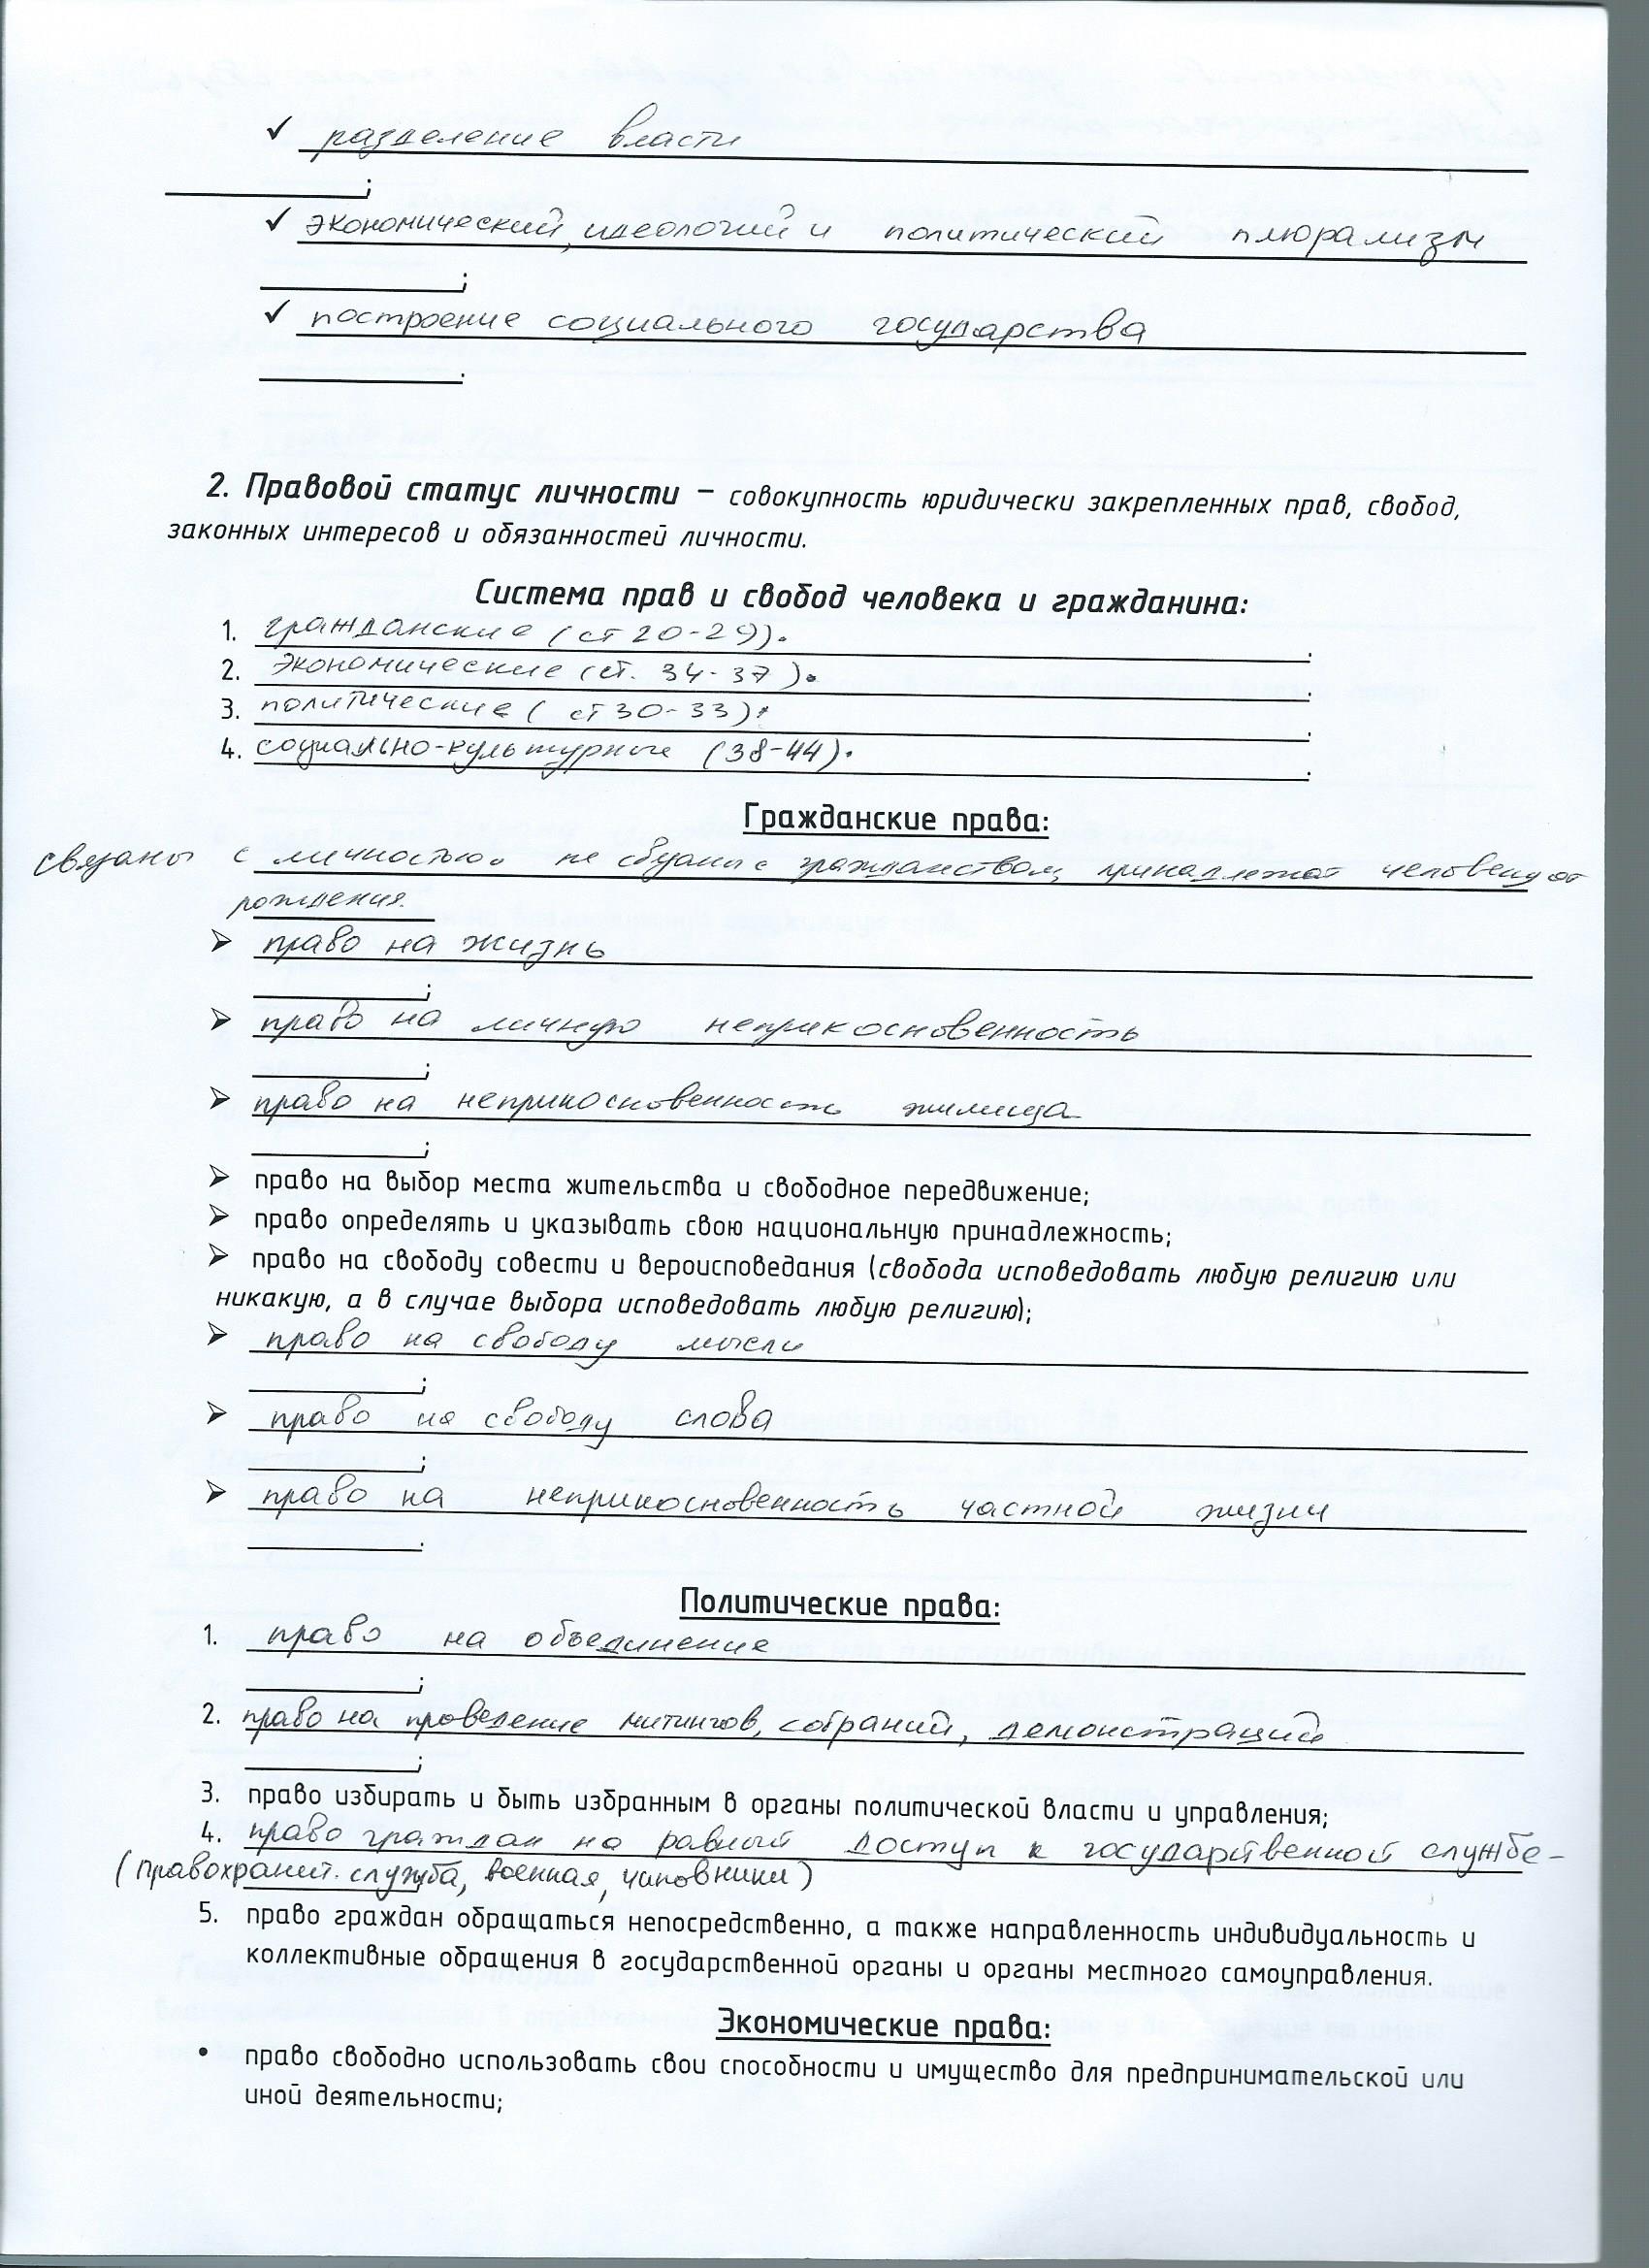 ✓ разделение власти
;
✓ экономический, идеологий и политический плюрализм
;
✓ построение социального государства
.
2. Правовой статус личности – совокупность юридически закрепленных прав, свобод,
законных интересов и обязанностей личности.
Система прав и свобод человека и гражданина:
1. гражданские (ст 20-29).
2. экономические (ст. 34-37).
3. политические (ст 30-33).
4. социально-культурные (38-44).
Гражданские права:
связаны с личностью. не связаны с гражданством, принадлежат человеку от
рождения.
➢ право на жизнь
;
➢ право на личную неприкосновенность
;
➢ право на неприкосновенность жилища
;
➢ право на выбор места жительства и свободное передвижение;
➢ право определять и указывать свою национальную принадлежность;
➢ право на свободу совести и вероисповедания (свобода исповедовать любую религию или
никакую, а в случае выбора исповедовать любую религию);
➢ право на свободу мысли
;
➢ право на свободу слова
;
➢ право на неприкосновенность частной жизни
.
Политические права:
1. право на объединение
;
2. право на проведение митингов, собраний, демонстраций
;
3. право избирать и быть избранным в органы политической власти и управления;
4. право граждан на равный доступ к государственной службе-
(правохранит. служба, военная, чиновники)
5. право граждан обращаться непосредственно, а также направленность индивидуальность и
коллективные обращения в государственной органы и органы местного самоуправления.
Экономические права:
• право свободно использовать свои способности и имущество для предпринимательской или
иной деятельности;